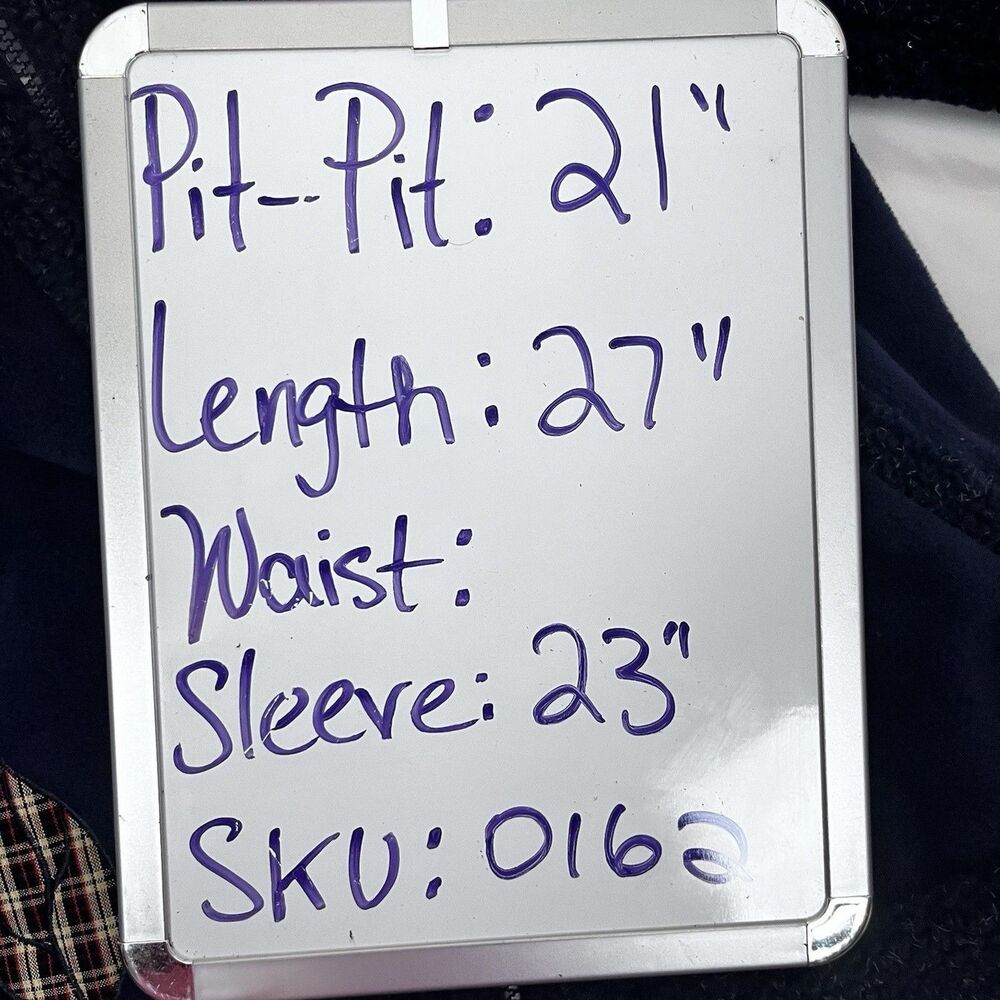 Pit-Pit: 21"
Length: 27"
Waist:
Sleeve: 23"
SKU: 0162